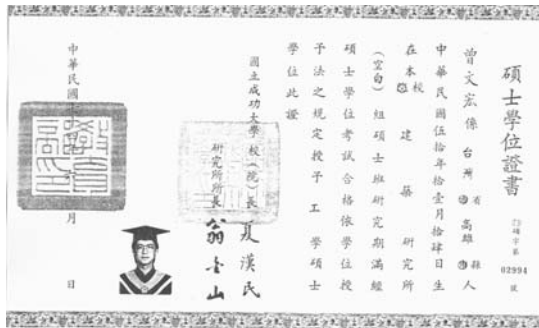 碩士學位證書
碩字第
02994
號
曾文宏係台灣省高雄縣人
中華民國伍拾年拾壹月拾肆日生
在本校建築研究所
(空白)組碩士班研究期滿經
碩士學位考試合格依學位授
予法之規定授予工學碩士
學位此證
國立成功大學校(院)長夏漢民
研究所所長翁金山
中華民國
月
日